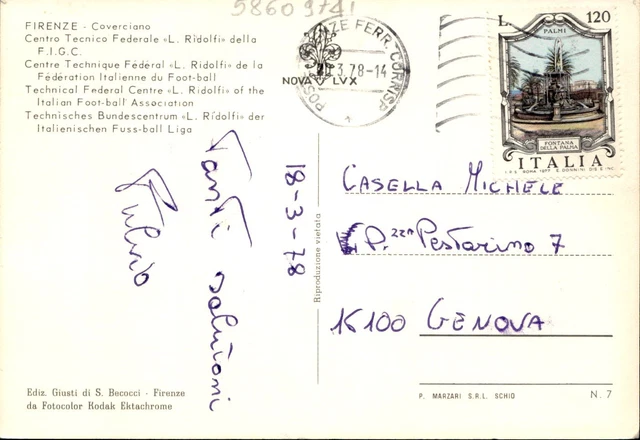 58609741
FIRENZE - Coverciano
Centro Tecnico Federale «L. Ridolfi» della
F.I.G.C.
Centre Technique Fédéral «L. Ridolfi» de la
Fédération Italienne du Foot-ball
Technical Federal Centre «L. Ridolfi» of the
Italian Foot-ball Association
Technisches Bundescentrum «L. Ridolfi» der
Italienischen Fuss-ball Liga
ZE FERR. CORRISP
.3.78-14
NOVA LVX
POS
L. 120
PALMI
FONTANA
DELLA PALMA
ITALIA
Tanti saluzioni
Fulvio
18-3-78
Riproduzione vietata
CASELLA MICHELE
P.zza Pestarino 7
16100 GENOVA
Ediz. Giusti di S. Becocci - Firenze
da Fotocolor Kodak Ektachrome
P. MARZARI S.R.L. SCHIO
N. 7